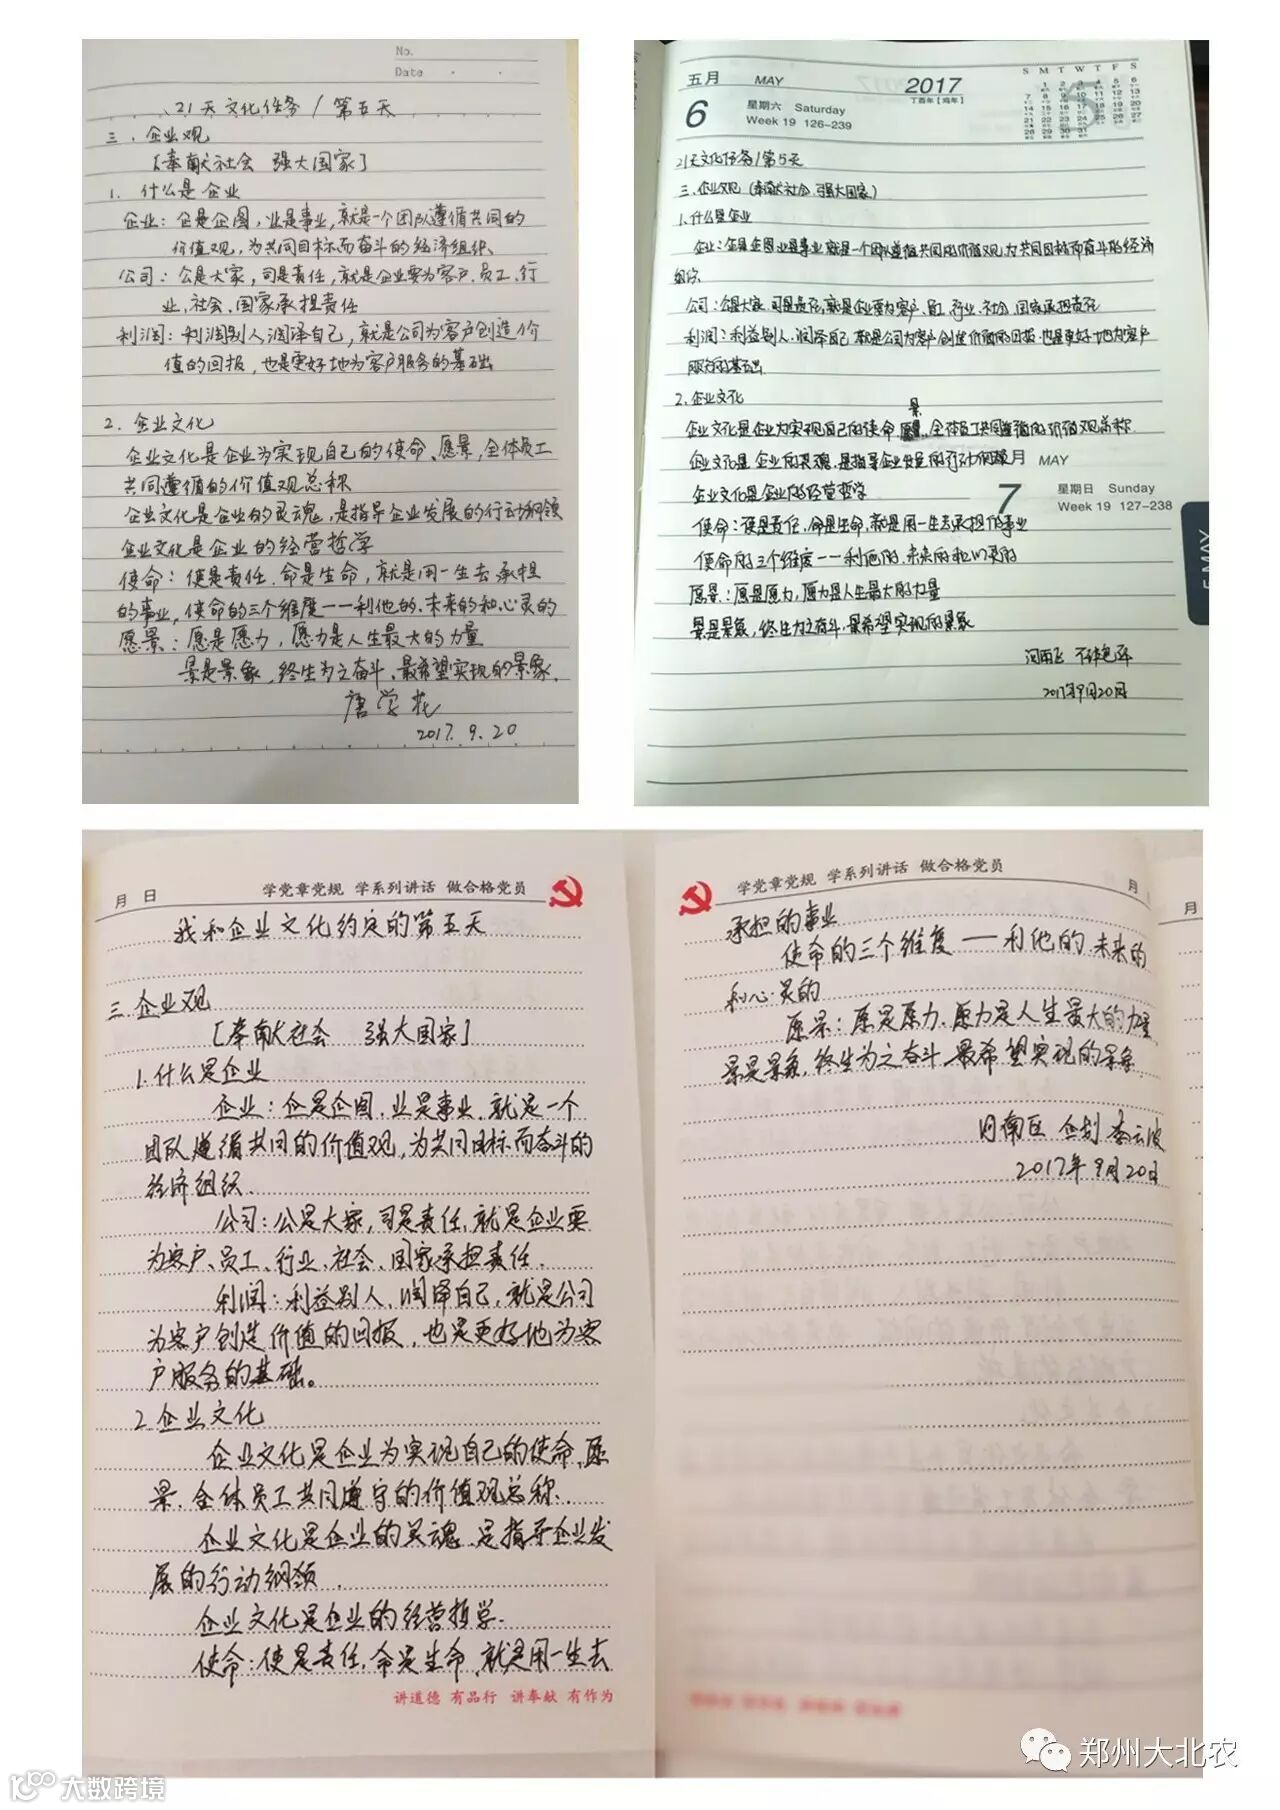 No.
Date
21天文化任务/第五天
三.企业观
[奉献社会 强大国家]
1. 什么是企业
企业：企是企图，业是事业，就是一个团队遵循共同的
价值观，为共同目标而奋斗的经济组织.
公司：公是大家，司是责任，就是企业要为客户、员工、行
业、社会、国家承担责任
利润：利润别人，润泽自己，就是公司为客户创造价
值的回报，也是更好地为客户服务的基础
2. 企业文化
企业文化是企业为实现自己的使命、愿景，全体员工
共同遵循的价值观总称
企业文化是企业的灵魂，是指导企业发展的行动纲领
企业文化是企业的经营哲学
使命：使是责任.命是生命，就是用一生去承担
的事业，使命的三个维度——利他的.未来的和心灵的
愿景：愿是愿力，愿力是人生最大的力量
景是景象，终生为之奋斗、最希望实现的景象.
唐学花
2017.9.20
五月 MAY
2017
丁酉年【鸡年】
6
星期六 Saturday
Week 19 126-239
S M T W T F S
21天文化任务/第5天
三.企业观（奉献社会.强大国家）
1.什么是企业
企业：企是企图,业是事业,就是一个团队遵循共同的价值观,为共同目标而奋斗的经济
组织
公司：公是大家.司是责任,就是企业要为客户、员工、行业、社会、国家承担责任
利润：利益别人.润泽自己.就是公司为客户创造价值的回报.也是更好地为客户
服务的基础
2.企业文化
景
企业文化是企业为实现自己的使命 愿 .全体员工共同遵循的价值观总称.
企业文化是企业的灵魂，是指导企业发展的行动纲领
月 MAY
企业文化是企业的经营哲学
7
星期日 Sunday
Week 19 127-238
使命：使是责任,命是生命,就是用一生去承担的事业
使命的三个维度——利他的.未来的和心灵的
愿景：愿是愿力，愿力是人生最大的力量
景是景象，终生为之奋斗.最希望实现的景象
河南区
2017年9月20日
5 MAY
月 日
学党章党规 学系列讲话 做合格党员
我和企业文化约定的第五天
三.企业观
[奉献社会 强大国家]
1.什么是企业
企业：企是企图，业是事业.就是一个
团队遵循共同的价值观，为共同目标而奋斗的
经济组织.
公司：公是大家，司是责任，就是企业要
为客户、员工、行业、社会、国家承担责任.
利润：利益别人，润泽自己，就是公司
为客户创造价值的回报，也是更好地为客
户服务的基础。
2.企业文化
企业文化是企业为实现自己的使命、愿
景.全体员工共同遵守的价值观总称.
企业文化是企业的灵魂.是指导企业发
展的行动纲领.
企业文化是企业的经营哲学.
使命：使是责任，命是生命，就是用一生去
讲道德 有品行 讲奉献 有作为
学党章党规 学系列讲话 做合格党员
月
承担的事业
使命的三个维度——利他的.未来的
和心灵的
愿景：愿是愿力.愿力是人生最大的力量
景是景象，终生为之奋斗.最希望实现的景象.
河南区 企划 李云波
2017年9月20日
月
郑州大北农
大数跨境